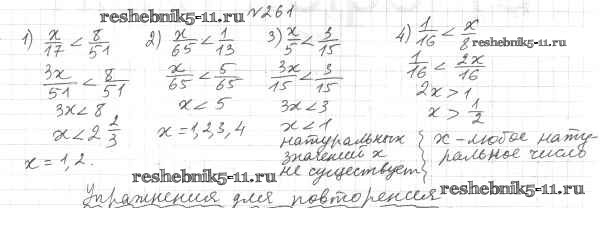 reshebnik5-11.ru №261
1) x/17 < 8/51
3x/51 < 8/51
3x < 8
x < 2 2/3
x = 1, 2.
2) x/65 < 1/13
x/65 < 5/65
x < 5
x = 1, 2, 3, 4
3) x/5 < 3/15
3x/15 < 3/15
3x < 3
x < 1
натуральных
значений x
не существует
4) 1/16 < x/8
reshebnik5-11.ru
1/16 < 2x/16
2x > 1
x > 1/2
x - любое нату-
ральное число
reshebnik5-11.ru
reshebnik5-11.ru
Упражнения для повторения